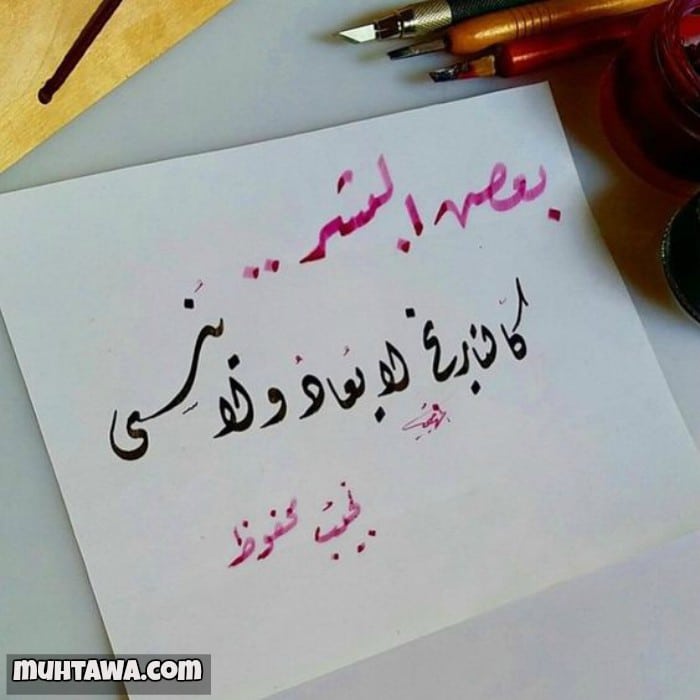 بعض البشر ..
كالتاريخ لا يُعادُ ولا يُنسى
نجيب محفوظ
MUHTAWA.COM